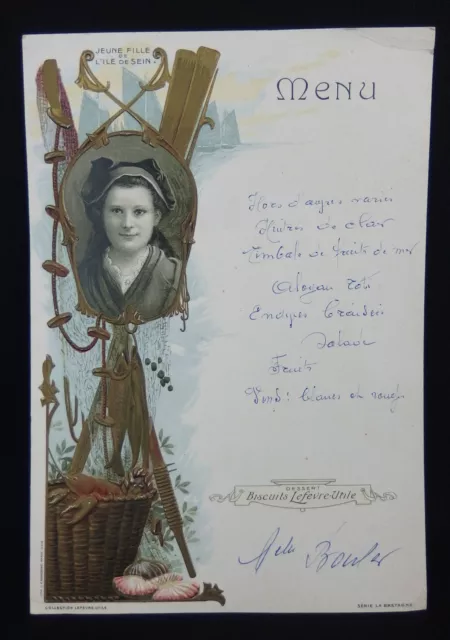 JEUNE FILLE
DE
L'ILE DE SEIN
MENU
Hors d'œuvres variés
Huîtres de clair
Timbale de fruits de mer
Aloyau rôti
Endives braisées
Salade
Fruits
Vins: blancs et rouges
DESSERT
Biscuits Lefèvre-Utile
COLLECTION LEFEVRE-UTILE
SÉRIE LA BRETAGNE